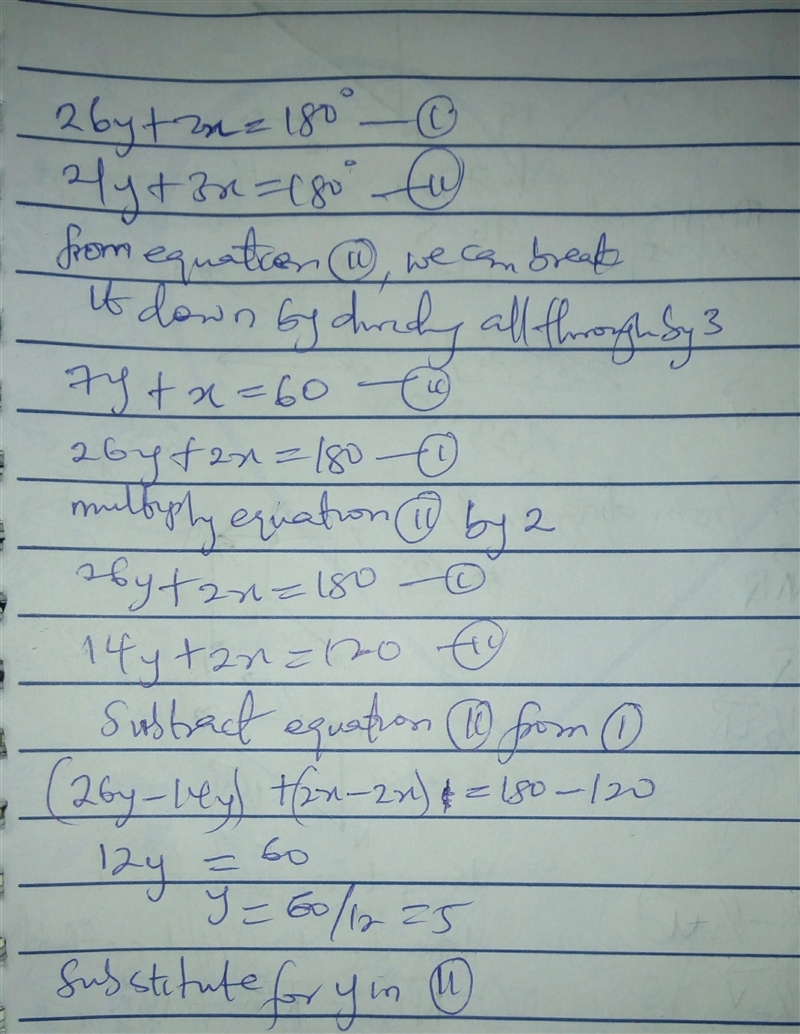 26y+2x=180° — (i)
21y+3x=180° — (ii)
from equation (ii), we can break
it down by dividing all through by 3
7y + x = 60 — (ii)
26y + 2x = 180 — (i)
multiply equation (ii) by 2
26y + 2x = 180 — (i)
14y + 2x = 120 — (ii)
Subtract equation (ii) from (i)
(26y-14y) +(2x-2x) = 180-120
12y = 60
y = 60/12 = 5
Substitute for y in (ii)